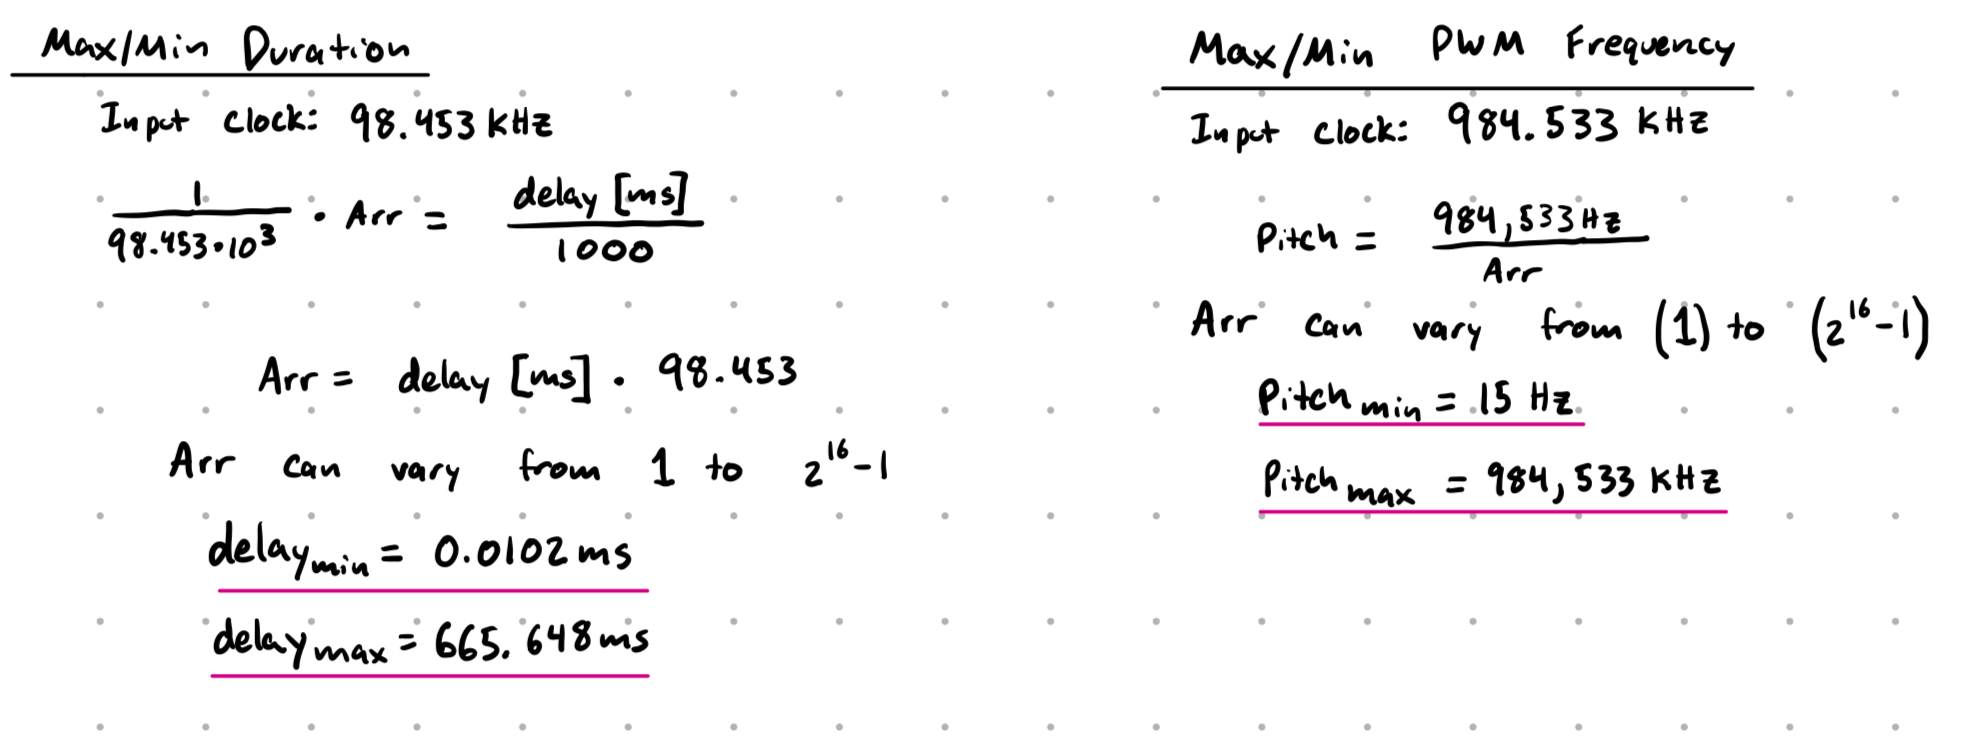 Max/Min Duration
Input clock: 98.453 KHz
1 / 98.453•10³ • Arr = delay [ms] / 1000
Arr = delay [ms] . 98.453
Arr can vary from 1 to 2¹⁶-1
delay min = 0.0102 ms
delay max = 665.648 ms
Max/Min PWM Frequency
Input clock: 984.533 KHz
Pitch = 984,533 Hz / Arr
Arr can vary from (1) to (2¹⁶-1)
Pitch min = 15 Hz
Pitch max = 984,533 KHz